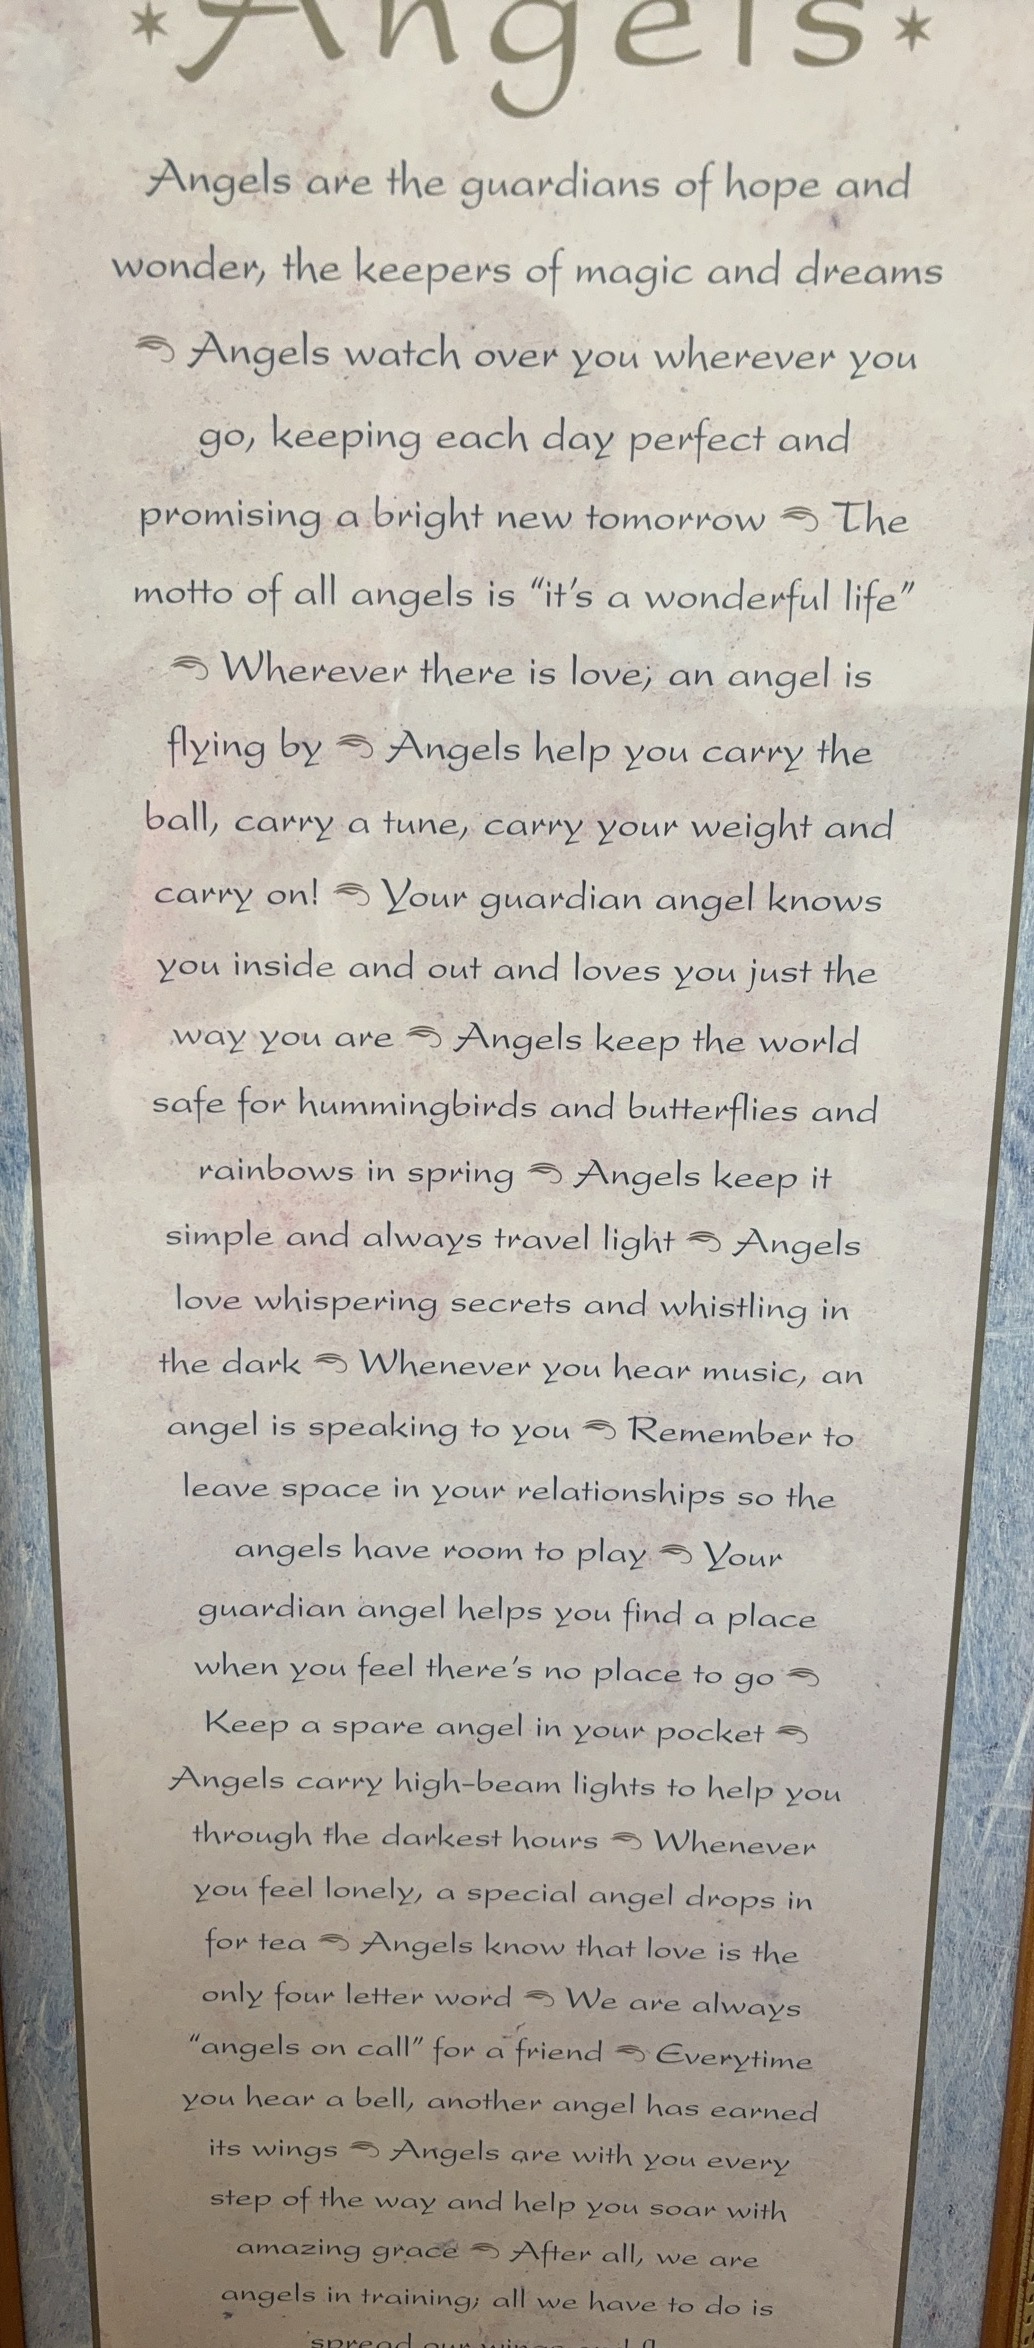 Angels
Angels are the guardians of hope and
wonder, the keepers of magic and dreams
Angels watch over you wherever you
go, keeping each day perfect and
promising a bright new tomorrow The
motto of all angels is “it’s a wonderful life”
Wherever there is love, an angel is
flying by Angels help you carry the
ball, carry a tune, carry your weight and
carry on! Your guardian angel knows
you inside and out and loves you just the
way you are Angels keep the world
safe for hummingbirds and butterflies and
rainbows in spring Angels keep it
simple and always travel light Angels
love whispering secrets and whistling in
the dark Whenever you hear music, an
angel is speaking to you Remember to
leave space in your relationships so the
angels have room to play Your
guardian angel helps you find a place
when you feel there’s no place to go
Keep a spare angel in your pocket
Angels carry high-beam lights to help you
through the darkest hours Whenever
you feel lonely, a special angel drops in
for tea Angels know that love is the
only four letter word We are always
“angels on call” for a friend Everytime
you hear a bell, another angel has earned
its wings Angels are with you every
step of the way and help you soar with
amazing grace After all, we are
angels in training; all we have to do is
spread our wings and